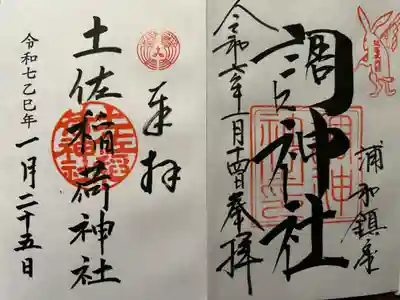 奉拝
土佐稲荷神社
令和七乙巳年
一月二十五日
浦和鎮座
調神社
令和七年一月十四日奉拝